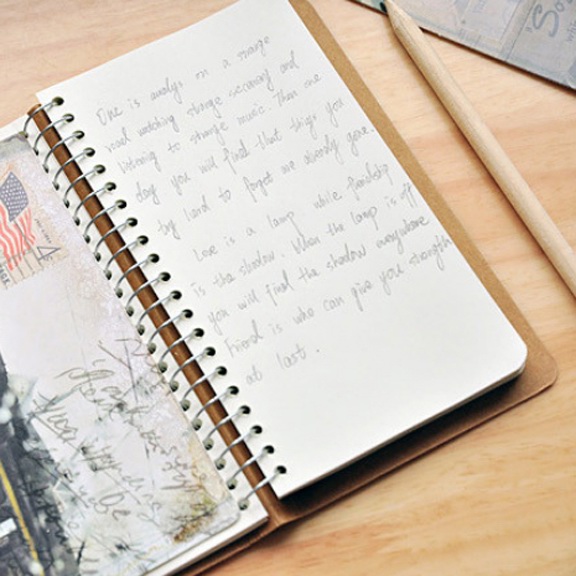 One is always on a strange
road watching strange scenery and
listening to strange music. Then one
day you will find that things you
try hard to forget are already gone.
Love is a lamp while friendship
is the shadow. When the lamp is off
you will find the shadow everywhere
Friend is who can give you strength
at last.
4